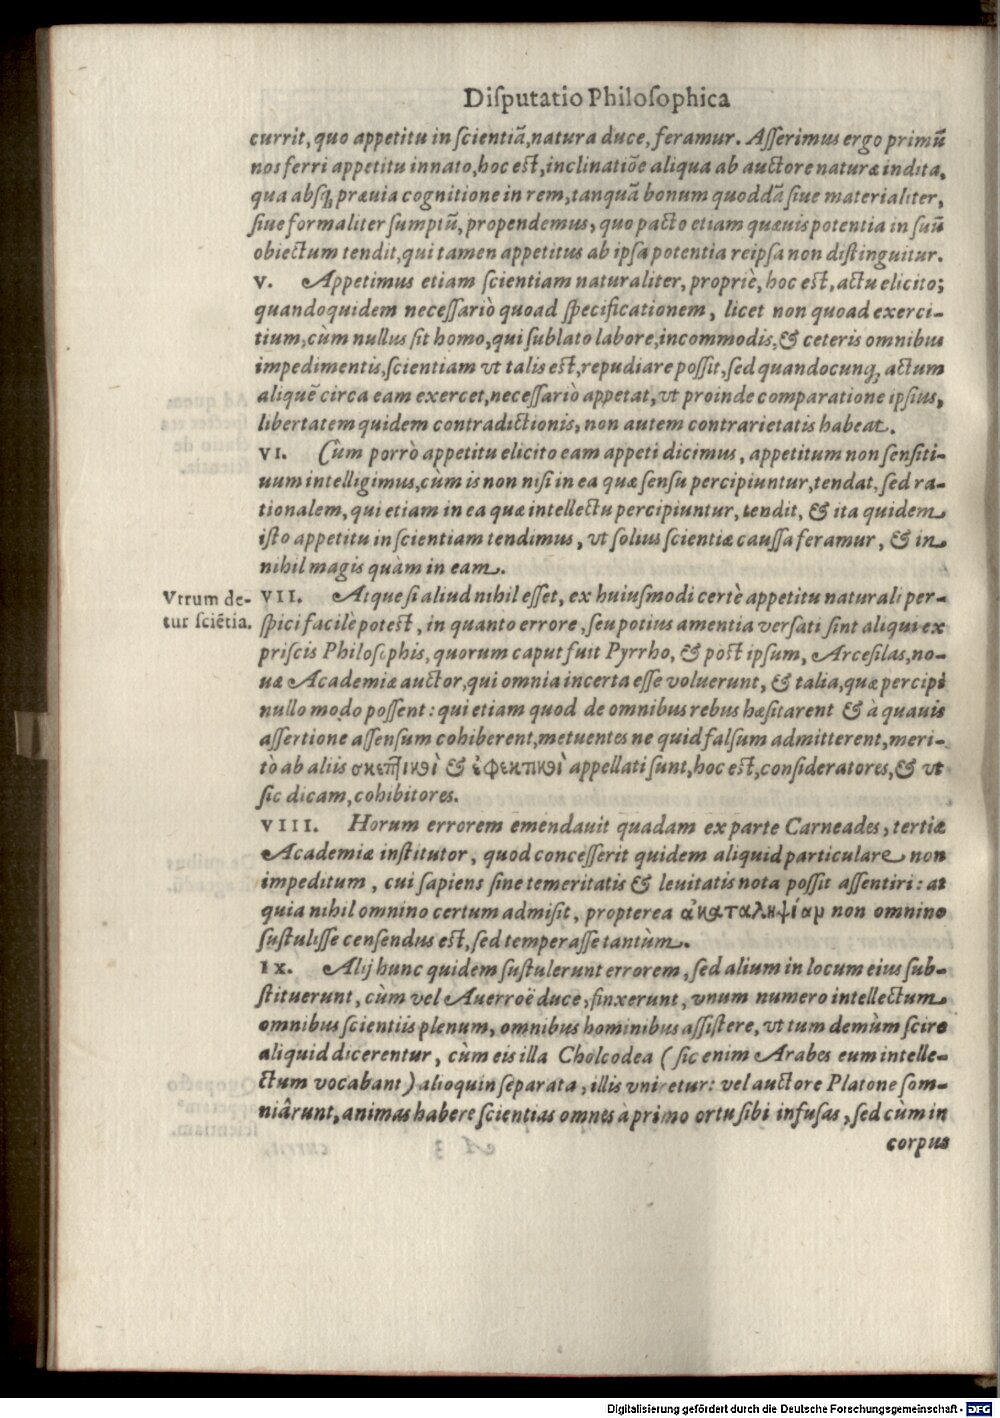 Diſputatio Philoſophica
currit, quo appetitu in ſcientiā, natura duce, feramur. Aſſerimus ergo primū
nos ferri appetitu innato, hoc eſt, inclinatiōe aliqua ab auctore naturæ indita,
qua abſq; præuia cognitione in rem, tanquā bonum quoddā ſiue materialiter,
ſiue formaliter ſumptū, propendemus, quo pacto etiam quæuis potentia in ſuū
obiectum tendit, qui tamen appetitus ab ipſa potentia reipſa non diſtinguitur.
V. Appetimus etiam ſcientiam naturaliter, propriè, hoc eſt, actu elicito;
quandoquidem neceſſariò quoad ſpecificationem, licet non quoad exerci-
tium, cùm nullus ſit homo, qui ſublato labore, incommodis, & ceteris omnibus
impedimentis, ſcientiam vt talis eſt, repudiare poſſit, ſed quandocunq; actum
aliquē circa eam exercet, neceſſariò appetat, vt proinde comparatione ipſius,
libertatem quidem contradictionis, non autem contrarietatis habeat.
VI. Cùm porrò appetitu elicito eam appeti dicimus, appetitum non ſenſiti-
uum intelligimus, cùm is non niſi in ea quæ ſenſu percipiuntur, tendat, ſed ra-
tionalem, qui etiam in ea quæ intellectu percipiuntur, tendit, & ita quidem
iſto appetitu in ſcientiam tendimus, vt ſolius ſcientiæ cauſſa feramur, & in
nihil magis quàm in eam.
Vtrum de-
tur ſciētia.
VII. Atque ſi aliud nihil eſſet, ex huiuſmodi certè appetitu naturali per-
ſpici facilè poteſt, in quanto errore, ſeu potius amentia verſati ſint aliqui ex
priſcis Philoſophis, quorum caput fuit Pyrrho, & poſt ipſum, Arceſilas, no-
uæ Academiæ auctor, qui omnia incerta eſſe voluerunt, & talia, quæ percipi
nullo modo poſſent: qui etiam quod de omnibus rebus hæſitarent & à quauis
aſſertione aſſenſum cohiberent, metuentes ne quid falſum admitterent, meri-
tò ab aliis σκεπτικοὶ & ἐφεκτικοὶ appellati ſunt, hoc eſt, conſideratores, & vt
ſic dicam, cohibitores.
VIII. Horum errorem emendauit quadam ex parte Carneades, tertiæ
Academiæ inſtitutor, quod conceſſerit quidem aliquid particulare non
impeditum, cui ſapiens ſine temeritatis & leuitatis nota poſſit aſſentiri: at
quia nihil omnino certum admiſit, propterea ἀκαταληψίαμ non omnino
ſuſtuliſſe cenſendus eſt, ſed temperaſſe tantùm.
IX. Alij hunc quidem ſuſtulerunt errorem, ſed alium in locum eius ſub-
ſtituerunt, cùm vel Auerroë duce, finxerunt, vnum numero intellectum
omnibus ſcientiis plenum, omnibus hominibus aſſiſtere, vt tum demùm ſcire
aliquid dicerentur, cùm eis illa Cholcodea (ſic enim Arabes eum intelle-
ctum vocabant) alioquin ſeparata, illis vniretur: vel auctore Platone ſom-
niârunt, animas habere ſcientias omnes à primo ortu ſibi infuſas, ſed cùm in
corpus
Digitalisierung gefördert durch die Deutsche Forschungsgemeinschaft - DFG